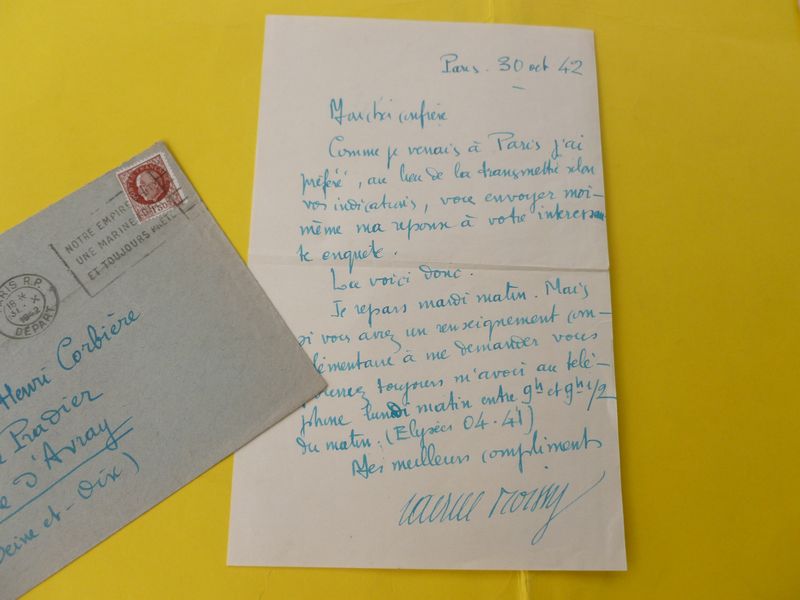 Paris. 30 oct 42
Mon cher confrère
Comme je venais à Paris j'ai
préféré, au lieu de la transmettre selon
vos indications, vous envoyer moi-
même ma réponse à votre interessan
te enquête.
La voici donc.
Je repars mardi matin. Mais
si vous avez un renseignement com-
plémentaire à me demander vous
pouvez toujours m'avoir au télé-
phone lundi matin entre 9h et 9h 1/2
du matin: (Elysées 04.41)
Mes meilleurs compliments
NOTRE EMPIRE
UNE MARINE
ET TOUJOURS PRÊTE
PARIS R.P.
18 H
X
1942
DÉPART
Henri Corbière
Pradier
d'Avray
Seine et-Oise)